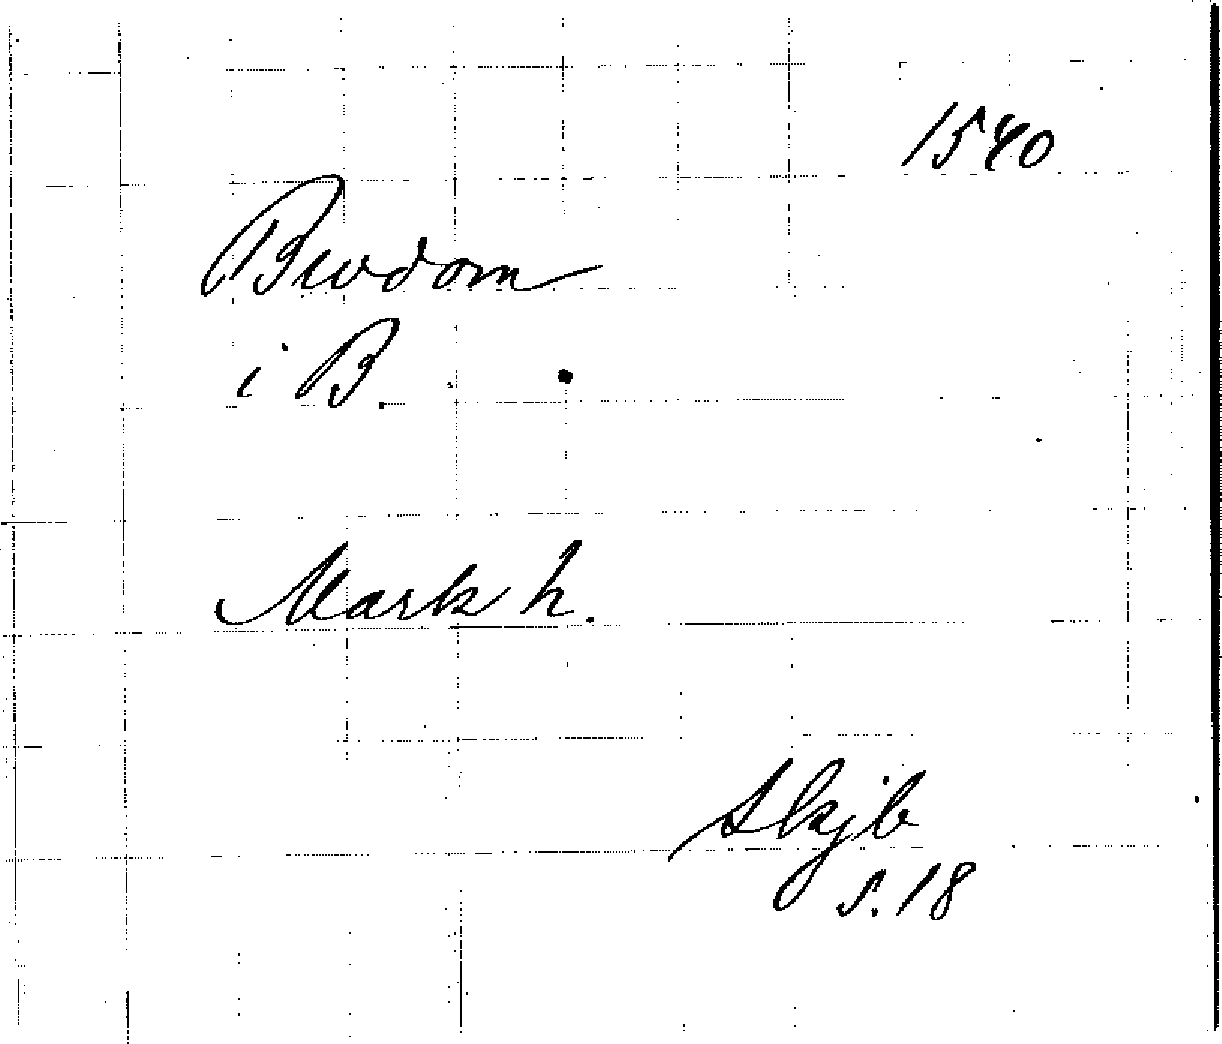 1540
i B.
Mark h.
Skjb
s. 18